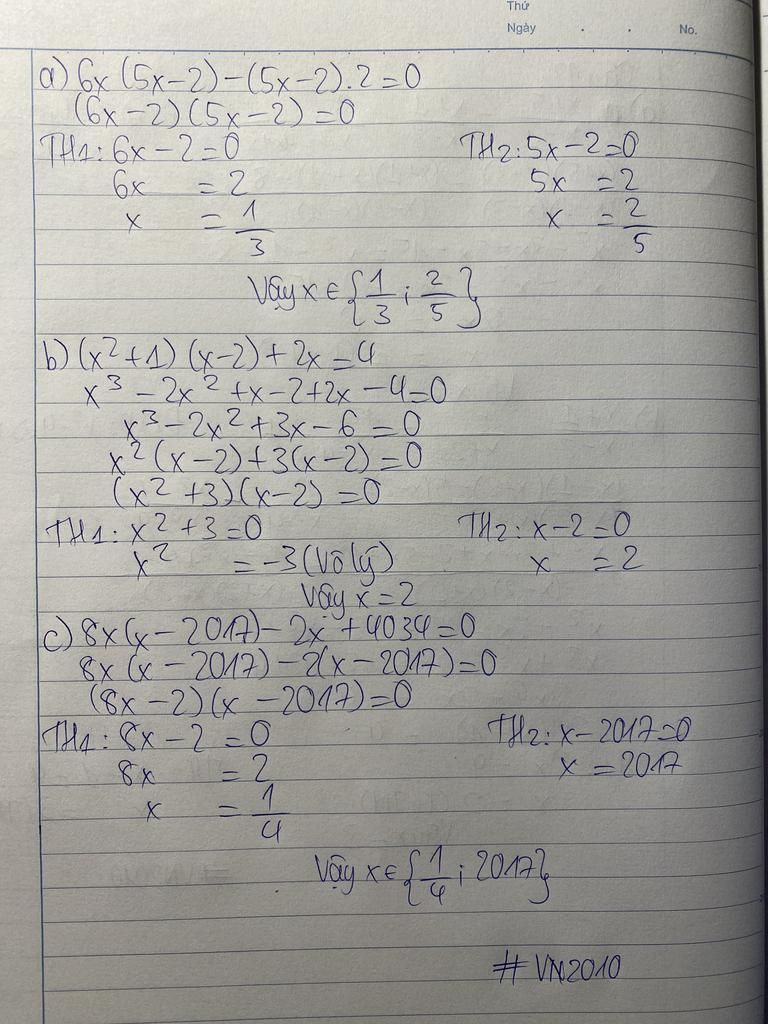 Thứ
Ngày . . No.
a) 6x (5x-2) - (5x-2).2=0
(6x-2)(5x-2)=0
TH1: 6x-2=0 TH2: 5x-2=0
6x =2 5x =2
x = 1/3 x = 2/5
Vậy x ∈ {1/3; 2/5}
b) (x²+1)(x-2)+2x=4
x³-2x²+x-2+2x-4=0
x³-2x²+3x-6=0
x²(x-2)+3(x-2)=0
(x²+3)(x-2)=0
TH1: x²+3=0 TH2: x-2=0
x² =-3 (Vô lý) x =2
Vậy x=2
c) 8x(x-2017)-2x+4034=0
8x(x-2017)-2(x-2017)=0
(8x-2)(x-2017)=0
TH1: 8x-2=0 TH2: x-2017=0
8x =2 x =2017
x = 1/4
Vậy x ∈ {1/4; 2017}
#VN2010